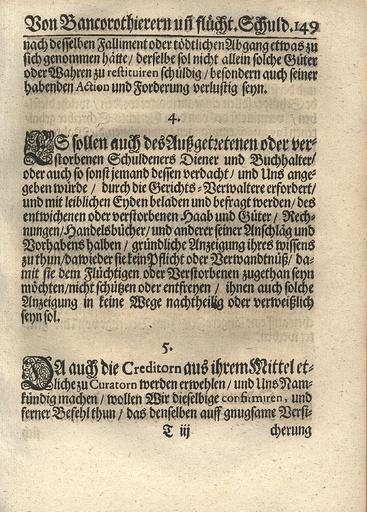 Von Bancorothierern uñ flücht. Schuld. 149
nach desselben Falliment oder tödtlichen Abgang etwas zu
sich genommen hätte / derselbe sol nicht allein solche Güter
oder Wahren zu restituiren schüldig / besondern auch seiner
habenden Action und Forderung verlustig seyn.
4.
ES sollen auch des Außgetretenen oder ver-
storbenen Schuldeners Diener und Buchhalter /
oder auch so sonst jemand dessen verdacht / und Uns ange-
geben würde / durch die Gerichts-Verwaltere erfordert /
und mit leiblichen Eyden beladen und befraget werden / des
entwichenen oder verstorbenen Haab und Güter / Rech-
nungen / Handelsbücher / und anderer seiner Anschläg und
Vorhabens halben / gründliche Anzeigung ihres wissens
zu thun / dawieder sie kein Pflicht oder Verwandtnüß / da-
mit sie dem Flüchtigen oder Verstorbenen zugethan seyn
möchten / nicht schützen oder entfreyen / ihnen auch solche
Anzeigung in keine Wege nachtheilig oder verweißlich
seyn sol.
5.
DA auch die Creditorn aus ihrem Mittel et-
liche zu Curatorn werden erwehlen / und Uns Nam-
kündig machen / wollen Wir dieselbige confirmiren, und
ferner Befehl thun / das denselben auff gnugsame Versi-
T iij
cherung